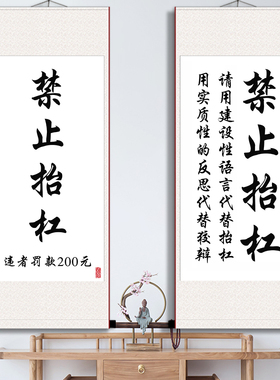 禁止抬杠
违者罚款200元
禁止抬杠
请用建设性语言代替抬杠
用实质性的反思代替狡辩